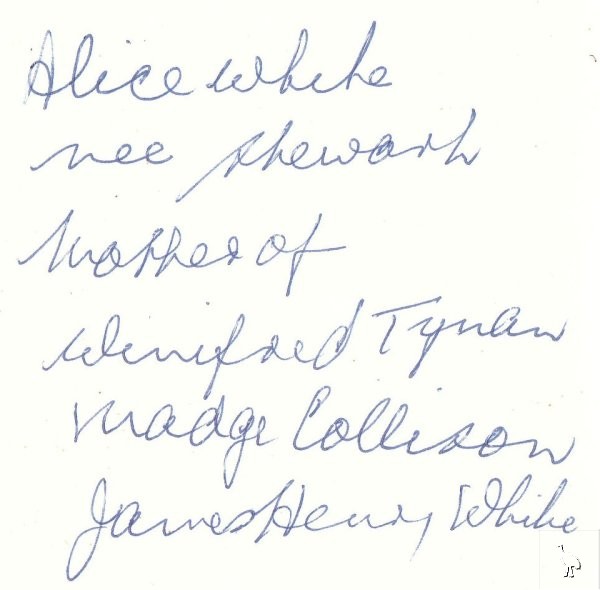 Alice White
nee Stewart
Mother of
Winifred Tynan
Madge Collison
James Henry White